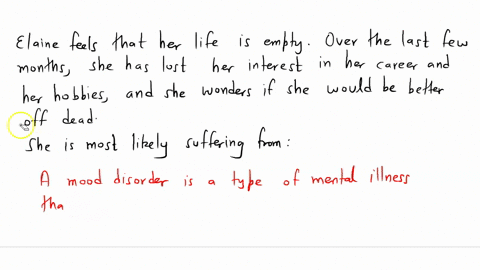 Elaine feels that her life is empty. Over the last few
months, she has lost her interest in her career and
her hobbies, and she wonders if she would be better
off dead.
She is most likely suffering from:
A mood disorder is a type of mental illness
tha